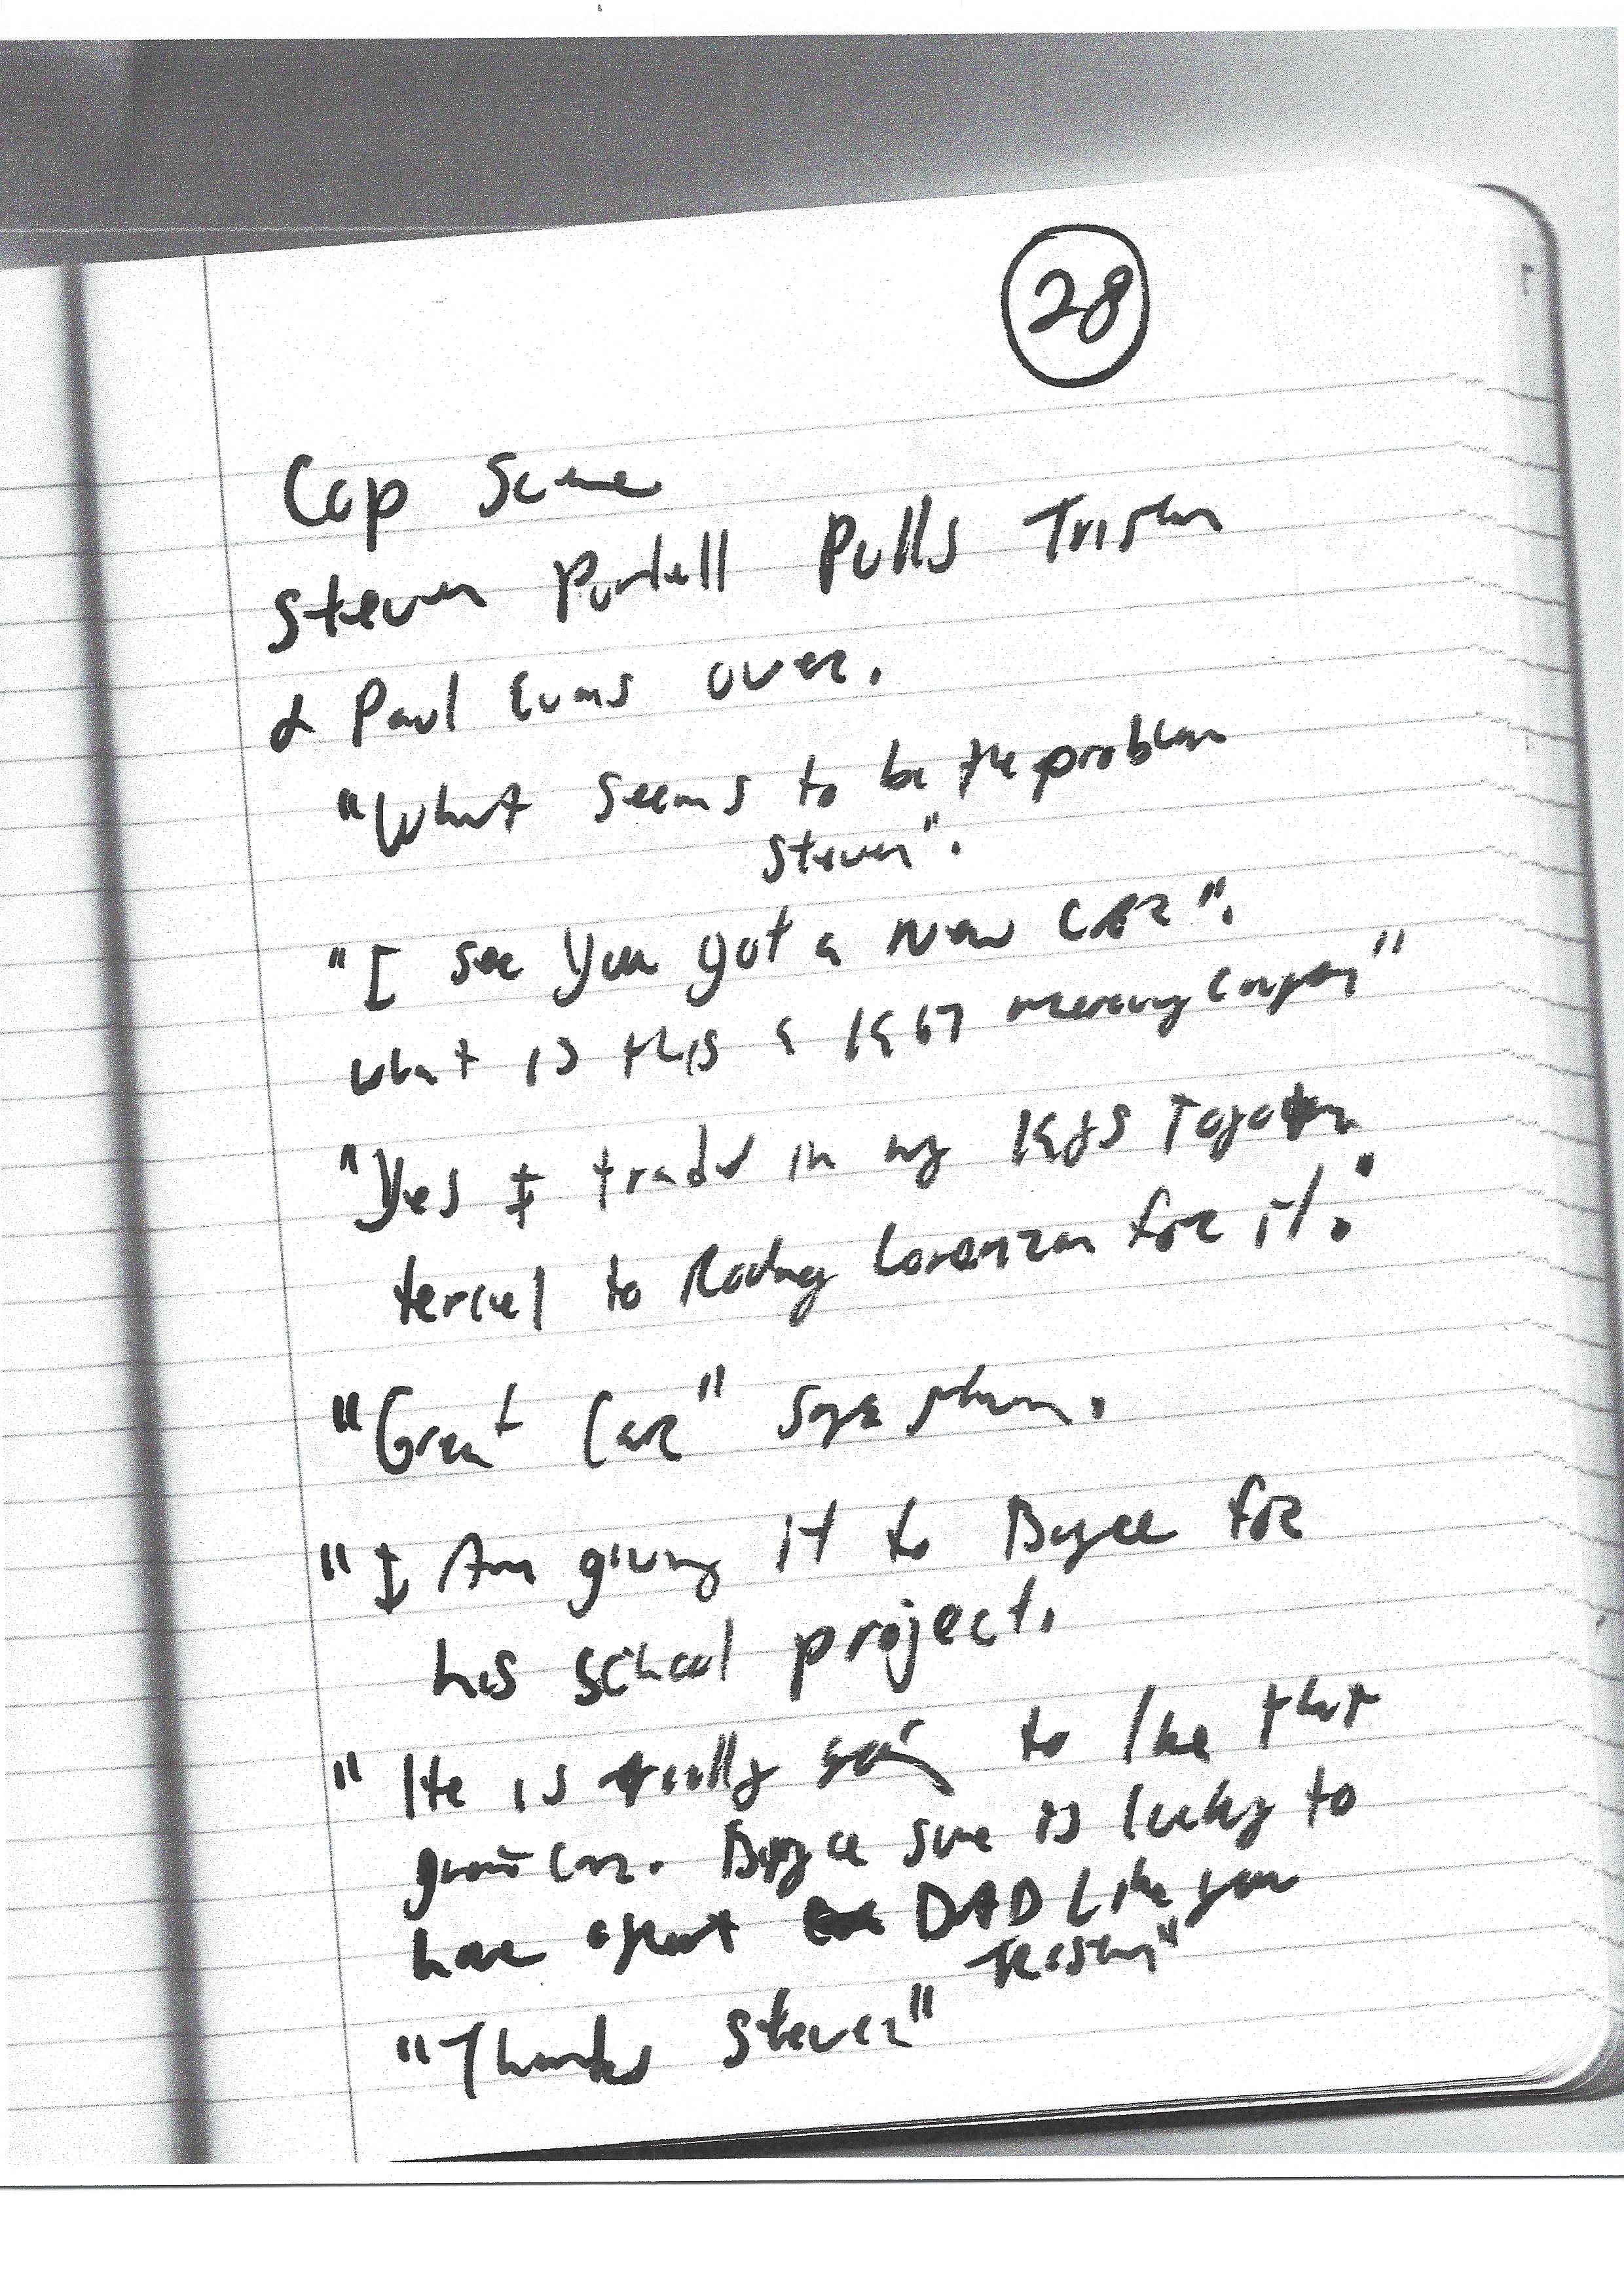 28
Cop Scene
Steven Purdell Pulls Tristan
& Paul Evans over.
"What seems to be the problem
Steven".
"I see you got a New CAR".
what is this a 1967 mercury Cougar"
"Yes I traded in my 1985 Toyota
tercel to Rodney Lorenzan for it."
"Great Car" says Steven.
"I Am giving it to Boyce for
his school project.
"He is really going to like that
great car. Boyce sure is lucky to
have a great DAD Like you
Tristan"
"Thanks Steven"